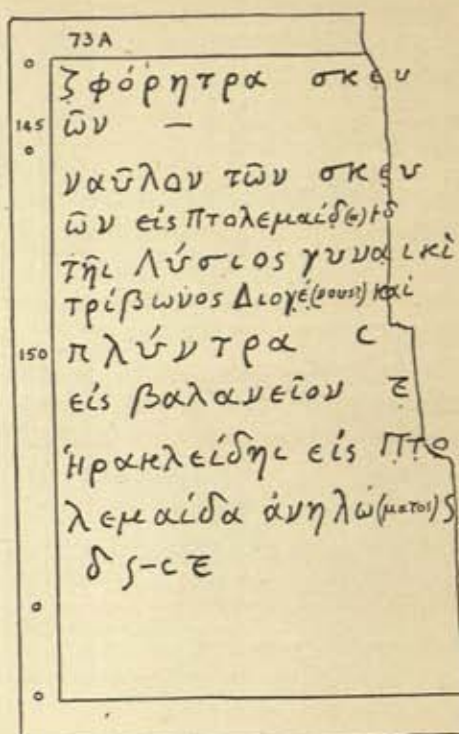 73 A
ζ φόρητρα σκευ
145 ῶν —
ναῦλον τῶν σκευ
ῶν εἰς Πτολεμαίδ(α) 𐅂δ
τῆι Λύσιος γυναικὶ
τρίβωνος Διογέ(νους?) καὶ
150 πλύντρα c
εἰς βαλανεῖον ε̄
Ἡρακλείδηι εἰς Πτο
λεμαίδα ἀνηλώ(ματος) ʃ
δ ʃ-c ε̄